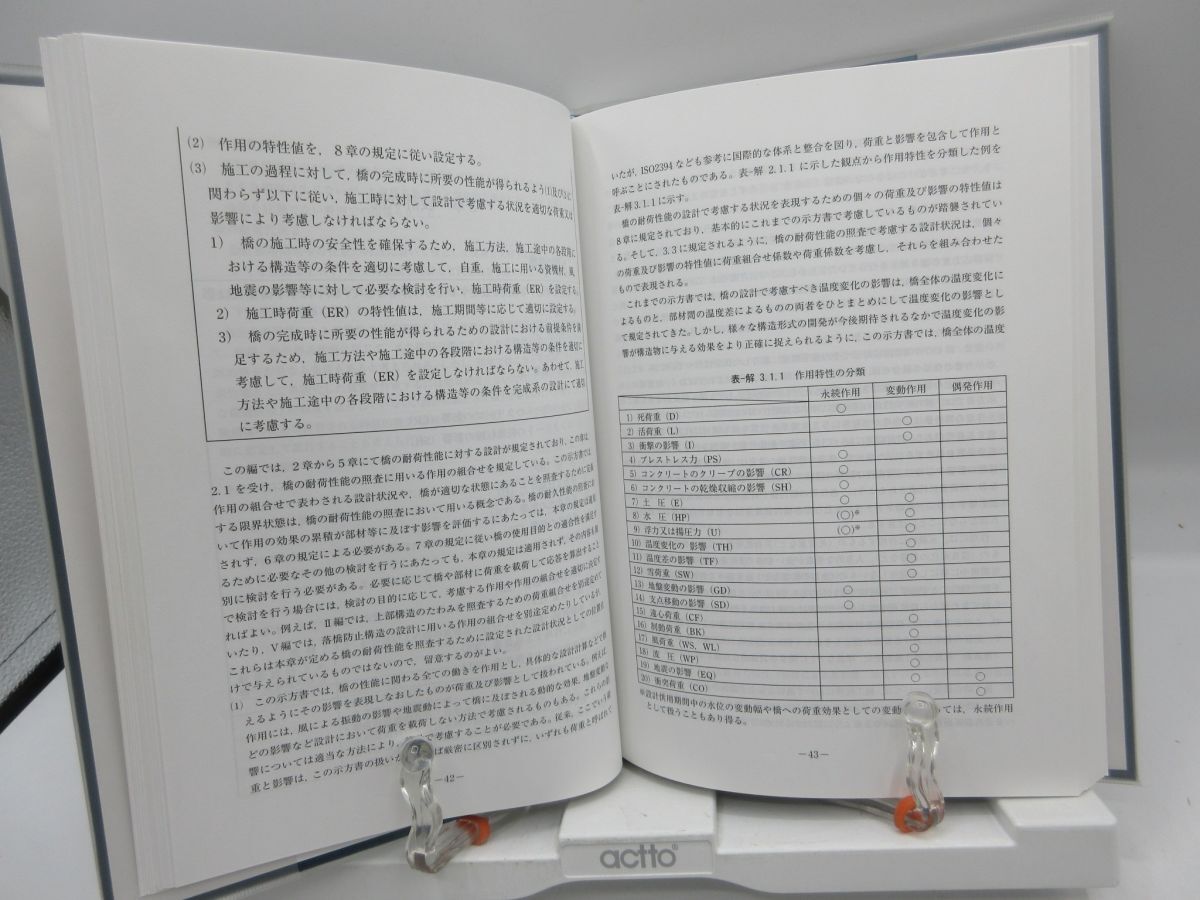 (2) 作用の特性値を，8章の規定に従い設定する。
(3) 施工の過程に対して，橋の完成時に所要の性能が得られるよう(1)及び(2)に
関わらず以下に従い，施工時に対して設計で考慮する状況を適切な荷重又は
影響により考慮しなければならない。
1) 橋の施工時の安全性を確保するため，施工方法，施工途中の各段階に
おける構造等の条件を適切に考慮して，自重，施工に用いる資機材，風，
地震の影響等に対して必要な検討を行い，施工時荷重（ER）を設定する。
2) 施工時荷重（ER）の特性値は，施工期間等に応じて適切に設定する。
3) 橋の完成時に所要の性能が得られるための設計における前提条件を満
足するため，施工方法や施工途中の各段階における構造等の条件を適切に
考慮して，施工時荷重（ER）を設定しなければならない。あわせて，施工
方法や施工途中の各段階における構造等の条件を完成系の設計にて適切
に考慮する。
この編では，2章から5章にて橋の耐荷性能に対する設計が規定されており，この章は，
2.1を受け，橋の耐荷性能の照査に用いる作用の組合せを規定している。この示方書では
作用の組合せで表わされる設計状況や，橋が適切な状態にあることを照査するために定義
する限界状態は，橋の耐荷性能の照査において用いる概念である。橋の耐久性能の照査にお
いて作用の効果の累積が部材等に及ぼす影響を評価するにあたっては，本章の規定は適用
されず，6章の規定による必要がある。7章の規定に従い橋の使用目的との適合性を満足す
るために必要なその他の検討を行うにあたっても，本章の規定は適用されず，その内容を個
別に検討を行う必要がある。必要に応じて橋や部材に荷重を載荷して応答を算出すること
で検討を行う場合には，検討の目的に応じて，考慮する作用や作用の組合せを適切に決定す
ればよい。例えば，Ⅱ編では，上部構造のたわみを照査するための荷重組合せを別途定めて
いたり，Ⅴ編では，落橋防止構造の設計に用いる作用の組合せを別途定めたりしているが，
これらは本章が定める橋の耐荷性能を照査するために設定された設計状況としての位置付
けで与えられているものではないので，留意するのがよい。
(1) この示方書では，橋の性能に関わる全ての働きを作用とし，具体的な設計計算などで扱
えるようにその影響を表現しなおしたものが荷重及び影響として扱われている。例えば，
作用には，風による振動の影響や地震動によって橋に及ぼされる動的な効果，地盤変動な
どの影響など設計において荷重を載荷しない方法で考慮されるものもある。これらの影
響については適当な方法により，
で考慮することが必要である。従来，ここでいう荷
重と影響は，この示方書の扱い
ば厳密に区別されずに，いずれも荷重と呼ばれて
—42—
いたが，ISO2394なども参考に国際的な体系と整合を図り，荷重と影響を包含して作用と
呼ぶことにされたものである。表-解 2.1.1に示した観点から作用特性を分類した例を
表-解3.1.1に示す。
橋の耐荷性能の設計で考慮する状況を表現するための個々の荷重及び影響の特性値は
8章に規定されており，基本的にこれまでの示方書で考慮しているものが踏襲されてい
る。そして，3.3に規定されるように，橋の耐荷性能の照査で考慮する設計状況は，個々
の荷重及び影響の特性値に荷重組合せ係数や荷重係数を考慮し，それらを組み合わせた
もので表現される。
これまでの示方書では，橋の設計で考慮すべき温度変化の影響は，橋全体の温度変化に
よるものと，部材間の温度差によるものの両者をひとまとめにして温度変化の影響とし
て規定されてきた。しかし，様々な構造形式の開発が今後期待されるなかで温度変化の影
響が構造物に与える効果をより正確に捉えられるように，この示方書では，橋全体の温度
表-解 3.1.1 作用特性の分類
永続作用 変動作用 偶発作用
1) 死荷重（D） ○
2) 活荷重（L） ○
3) 衝撃の影響（I） ○
4) プレストレス力（PS） ○
5) コンクリートのクリープの影響（CR） ○
6) コンクリートの乾燥収縮の影響（SH） ○
7) 土 圧（E） ○ ○
8) 水 圧（HP） （○）※ ○
9) 浮力又は揚圧力（U） （○）※ ○
10) 温度変化の 影響（TH） ○
11) 温度差の影響（TF） ○
12) 雪荷重（SW） ○
13) 地盤変動の影響（GD） ○
14) 支点移動の影響（SD） ○
15) 遠心荷重（CF） ○
16) 制動荷重（BK） ○
17) 風荷重（WS，WL） ○
18) 波 圧（WP） ○
19) 地震の影響（EQ） ○ ○
20) 衝突荷重（CO） ○
※設計供用期間中の水位の変動幅や橋への荷重効果としての変動
ては，永続作用
として扱うこともあり得る。
—43—
actto